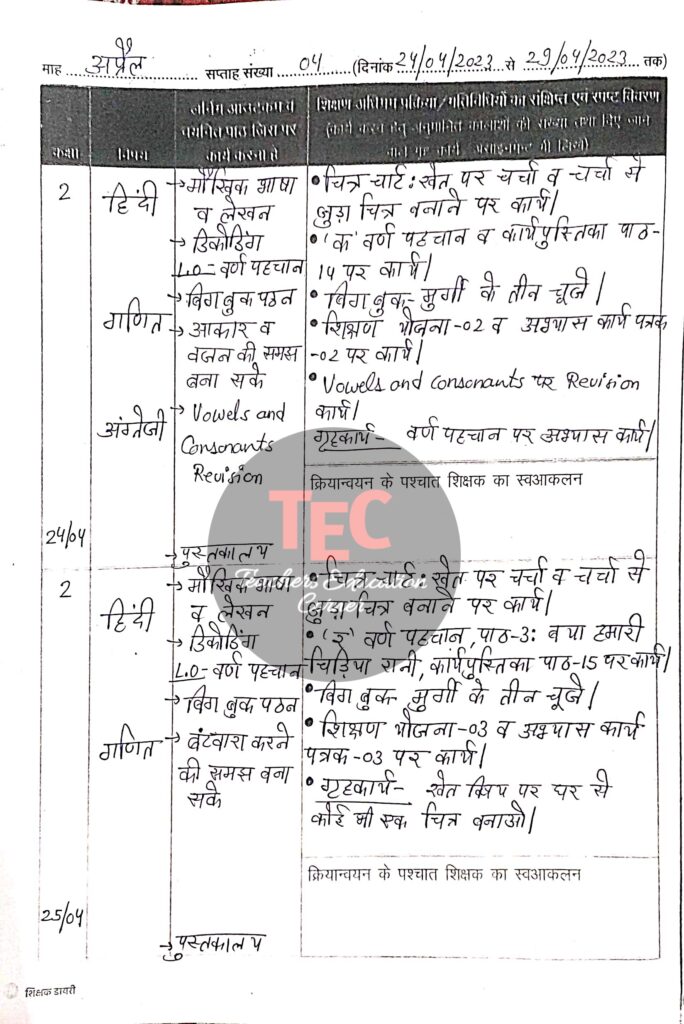 माह अप्रैल सप्ताह संख्या 04 (दिनांक 24/04/2023 से 29/04/2023 तक)
कक्षा
विषय
लर्निंग आउटकम व
चयनित पाठ जिस पर
कार्य करना है
शिक्षण अधिगम प्रक्रिया/गतिविधियों का संक्षिप्त एवं स्पष्ट विवरण
(कार्य करने हेतु अनुमानित कालांशों की संख्या तथा दिए जाने
वाले गृह कार्य असाइनमेंट भी लिखें)
2
हिंदी
→ मौखिक भाषा
व लेखन
→ डिकोडिंग
L.O- वर्ण पहचान
→ बिग बुक पठन
• चित्र चार्ट: खेत पर चर्चा व चर्चा से
जुड़ा चित्र बनाने पर कार्य।
• 'क' वर्ण पहचान व कार्यपुस्तिका पाठ-
14 पर कार्य।
• बिग बुक- मुर्गी के तीन चूजे।
गणित
→ आकार व
वजन की समझ
बना सके
• शिक्षण योजना-02 व अभ्यास कार्य पत्रक
-02 पर कार्य।
अंग्रेजी
→ Vowels and
Consonants
Revision
• Vowels and consonants पर Revision
कार्य।
गृहकार्य- वर्ण पहचान पर अभ्यास कार्य।
क्रियान्वयन के पश्चात शिक्षक का स्वआकलन
24/04
→ पुस्तकालय
TEC
Teachers Education
Corner
2
हिंदी
→ मौखिक भाषा
व लेखन
→ डिकोडिंग
L.O- वर्ण पहचान
→ बिग बुक पठन
• चित्र चार्ट: खेत पर चर्चा व चर्चा से
जुड़ा चित्र बनाने पर कार्य।
वर्ण पहचान, पाठ-3: क्या हमारी
चिड़िया रानी, कार्यपुस्तिका पाठ-15 पर कार्य।
• बिग बुक मुर्गी के तीन चूजे।
गणित
→ बंटवारा करने
की समझ बना
सके
• शिक्षण योजना-03 व अभ्यास कार्य
पत्रक-03 पर कार्य।
• गृहकार्य- खेत पर घर से
कोई भी एक चित्र बनाओ।
क्रियान्वयन के पश्चात शिक्षक का स्वआकलन
25/04
→ पुस्तकालय
शिक्षक डायरी